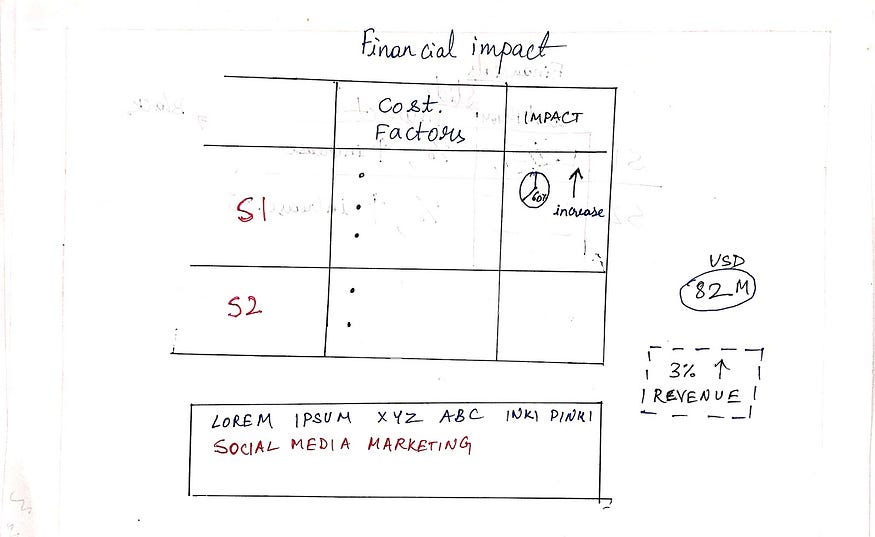 Financial impact
Cost.
Factors
IMPACT
S1
60%
increase
S2
USD
82 M
3% ↑
REVENUE
LOREM IPSUM XYZ ABC INKI PINKI
SOCIAL MEDIA MARKETING